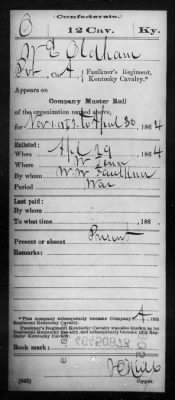 Confederate.
O 12 Cav. Ky.
W E Oldham
Pvt, Co. A, Faulkner's Regiment, Kentucky Cavalry.*
Appears on
Company Muster Roll
of the organization named above,
for Nov 1 1863 to April 30, 1864
Enlisted:
When Apl 29, 1864
Where W Tenn
By whom W. W. Faulkner
Period War
Last paid:
By whom
To what time , 186
Present or absent Present
Remarks:
*This company subsequently became Company A, 12th Regiment Kentucky Cavalry.
Faulkner's Regiment Kentucky Cavalry was also known as Regiment Kentucky Cavalry, and subsequently became 12th Regiment Kentucky Cavalry.
Book mark:
(642)
Copyist.